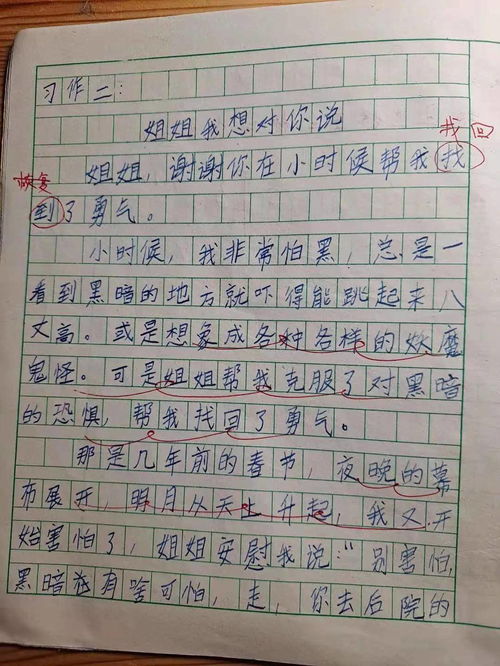 习作二：
姐姐我想对你说
找回
姐姐，谢谢你在小时候帮我找
恢复
到了勇气。
小时候，我非常怕黑，总是一
看到黑暗的地方就吓得能跳起来八
丈高。或是想象成各种各样的妖魔
鬼怪。可是姐姐帮我克服了对黑暗
的恐惧，帮我找回了勇气。
那是几年前的春节，夜晚的幕
布展开，明月从天上升起，我又开
始害怕了，姐姐安慰我说：“别害怕，
黑暗没有啥可怕，走，你去后院的